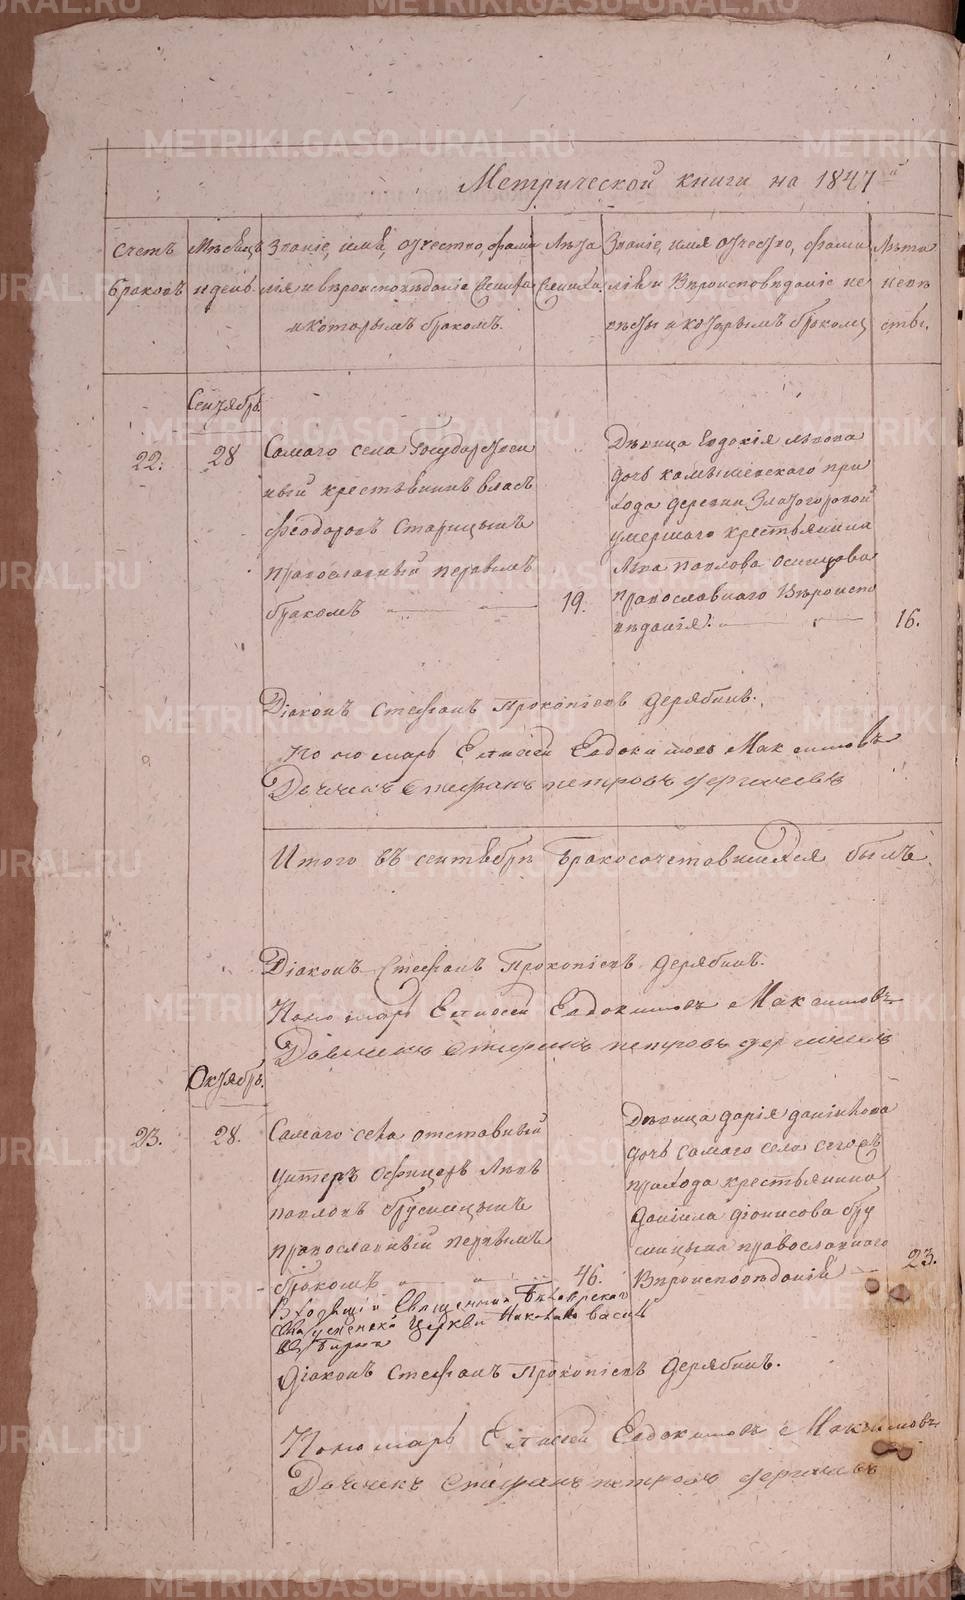 Метрической книги на 1847й
Счетъ
браковъ
Мѣсяцъ
и день
Званіе, имя, отчество, фами
лія и вѣроисповѣданіе жениха
и которымъ бракомъ.
Лѣта
жениха
Званіе, имя отчество, фами
лія и вѣроисповѣданіе не
вѣсты и которымъ бракомъ
Лѣта
невѣ
сты.
Сентябрь
22.
28
Самаго села Государствен
ный крестьянинъ Власъ
Феодоровъ Старицынъ
православный первымъ
бракомъ
19.
Дѣвица Евдокія Львова
дочь камышевскаго при
хода деревни Златогоровой
умершаго крестьянина
Льва Павлова Осинцова
православнаго вѣроиспо
вѣданія.
16.
Діаконъ Стефанъ Прокопіевъ Дерябинъ.
Пономарь Елисей Евдокимовъ Максимовъ
Дьячекъ Стефанъ Петровъ Дергачевъ
Итого въ сентябрѣ бракосочетавшихся былъ
Діаконъ Стефанъ Прокопіевъ Дерябинъ.
Пономарь Елисей Евдокимовъ Максимовъ
Дьячекъ Стефанъ Петровъ Дергачевъ
Октябрь.
23.
28.
Самаго села отставный
унтеръ офицеръ Левъ
Павловъ Брусницынъ
православный первымъ
бракомъ
46.
Дѣвица Дарія Даніилова
дочь самаго села сего же
прихода крестьянина
Даніила Діонисова Бру
сницына православнаго
вѣроисповѣданій
23.
Входящій Священникъ
Церкви Николай Васил
Діаконъ Стефанъ Прокопіевъ Дерябинъ.
Пономарь Елисей Евдокимовъ Максимовъ
Дьячекъ Стефанъ Петровъ Дергачевъ
METRIKI.GASO-URAL.RU